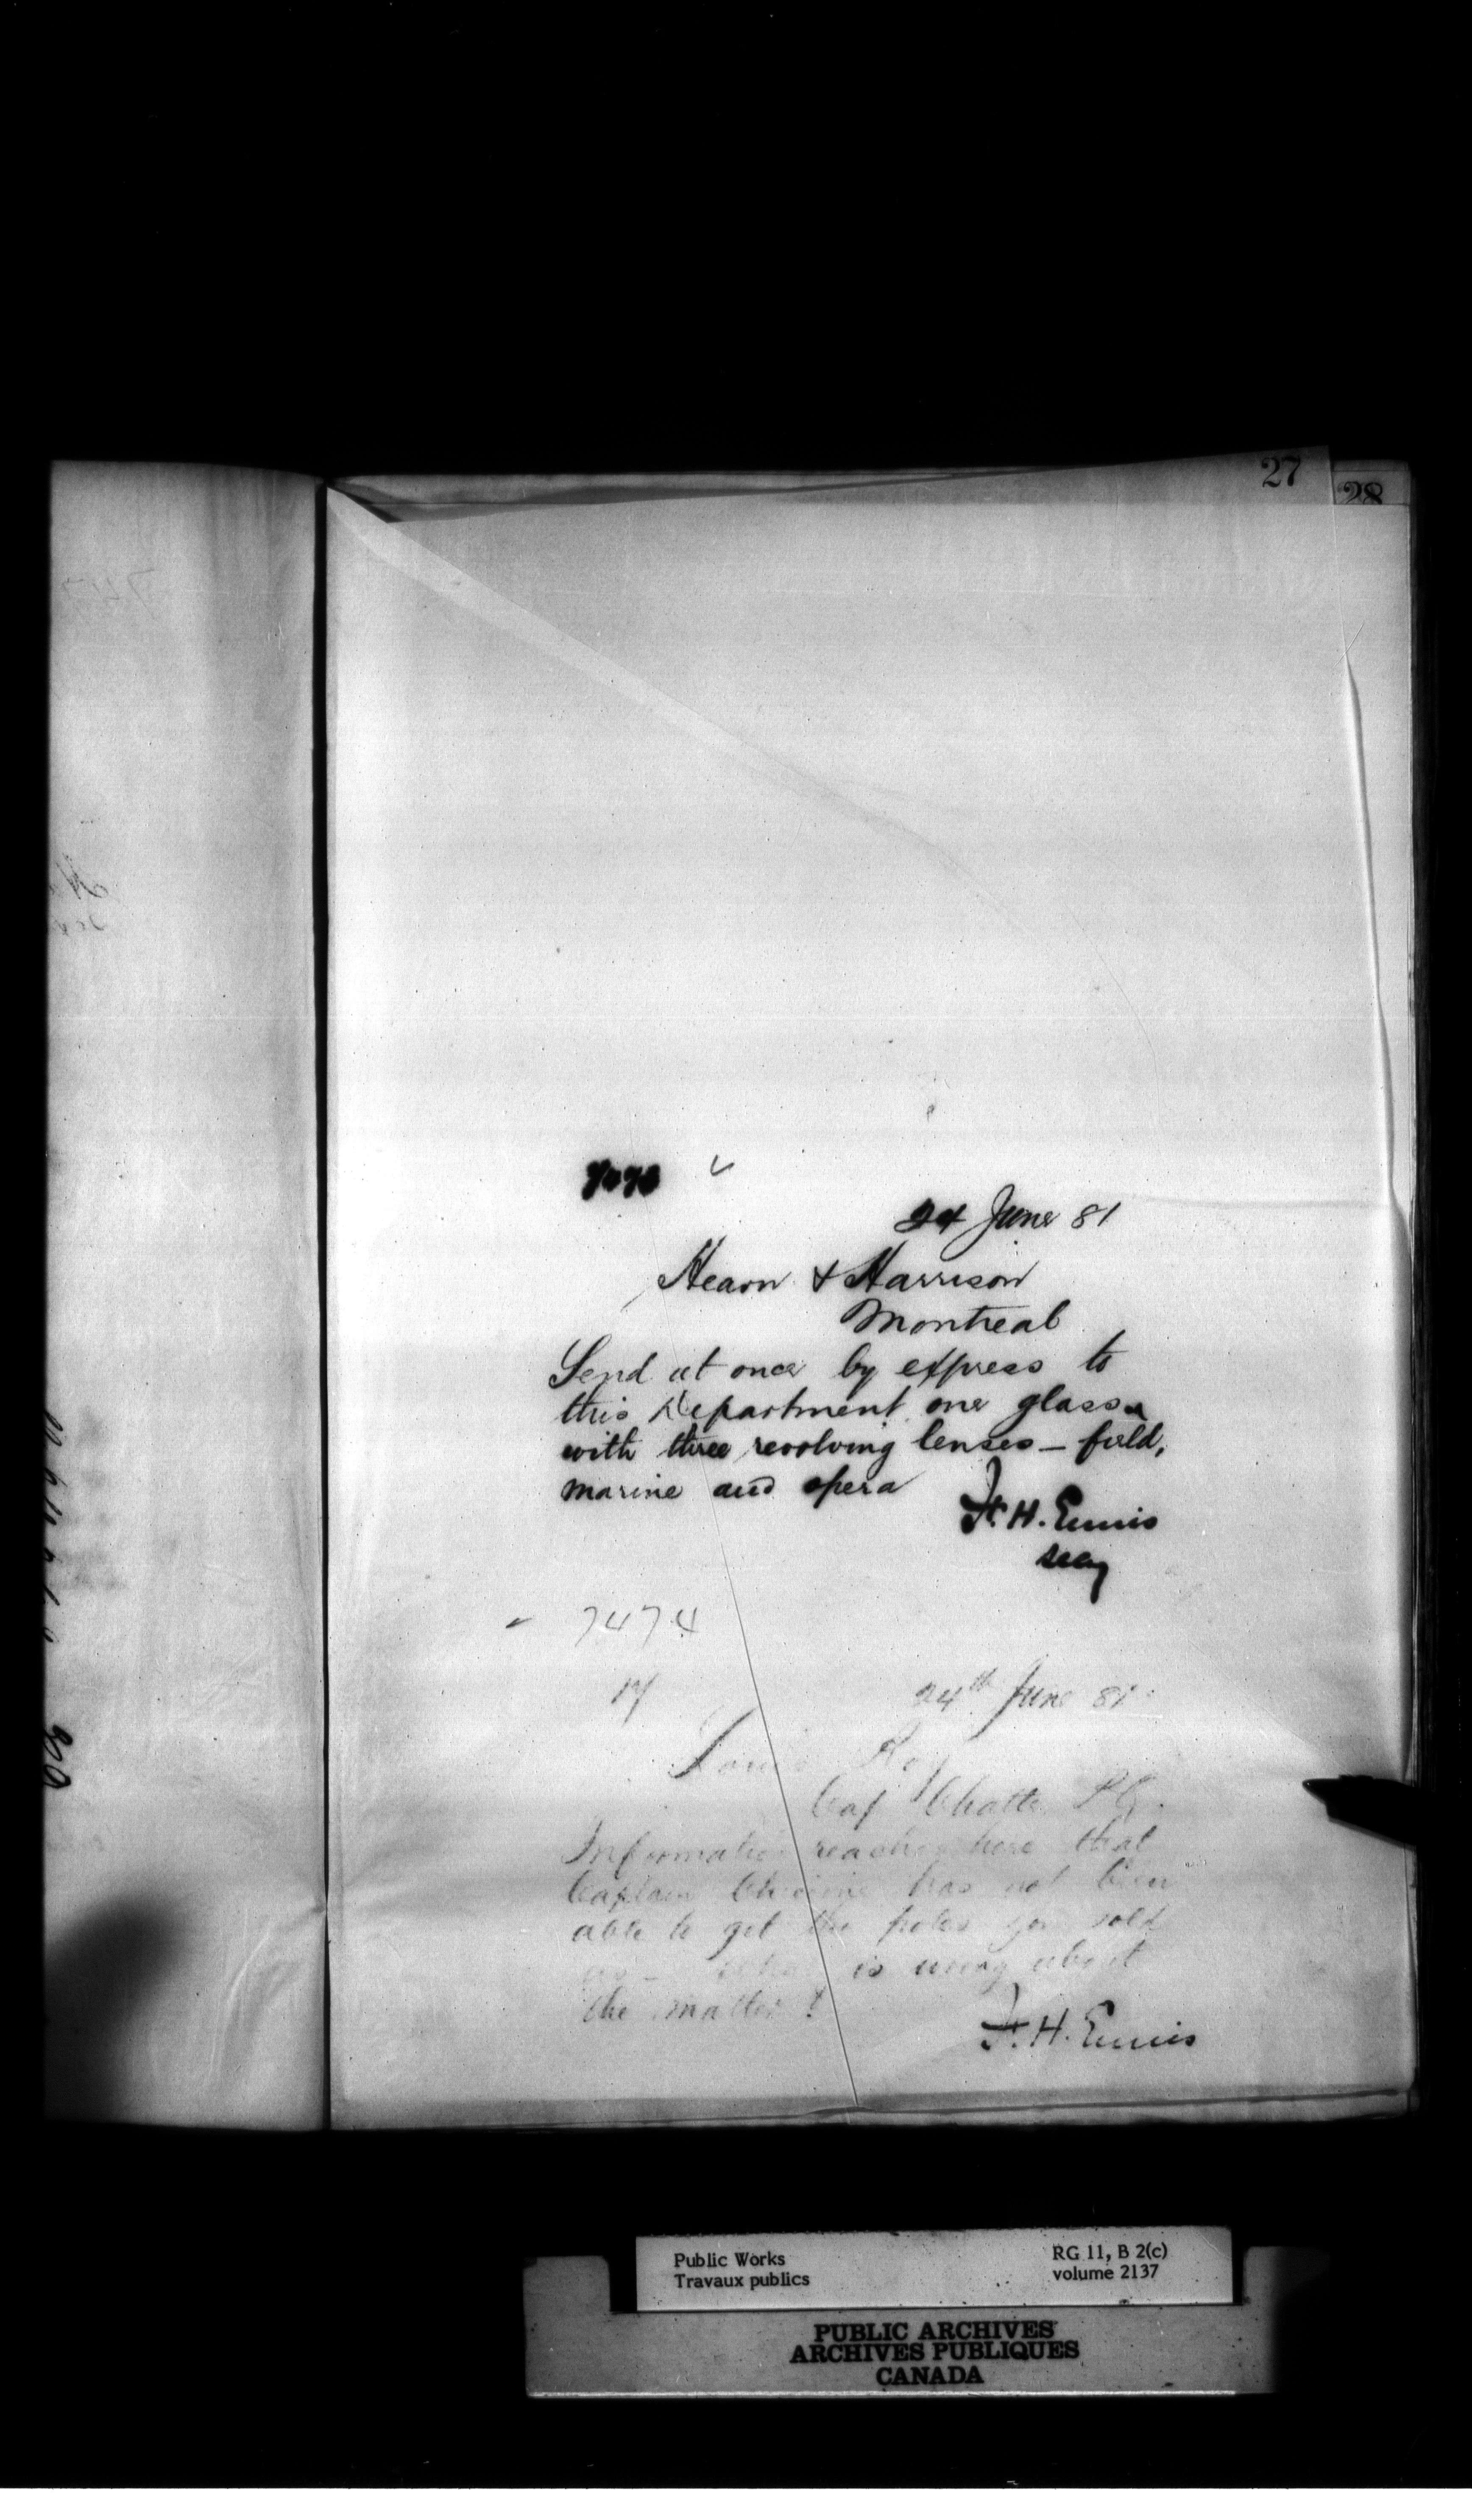 27
28
24 June 81
Hearn & Harrison
Montreal
Send at once by express to
this Department one glass
with three revolving lenses — field,
marine and opera
F. H. Ennis
Secy
7474
24th June 81
Louis Roy
Cap Chatte P.Q.
Information reaches here that
Captain has not been
able to get the poles you sold
is wrong about
the matter?
F. H. Ennis
Public Works
Travaux publics
RG 11, B 2(c)
volume 2137
PUBLIC ARCHIVES
ARCHIVES PUBLIQUES
CANADA